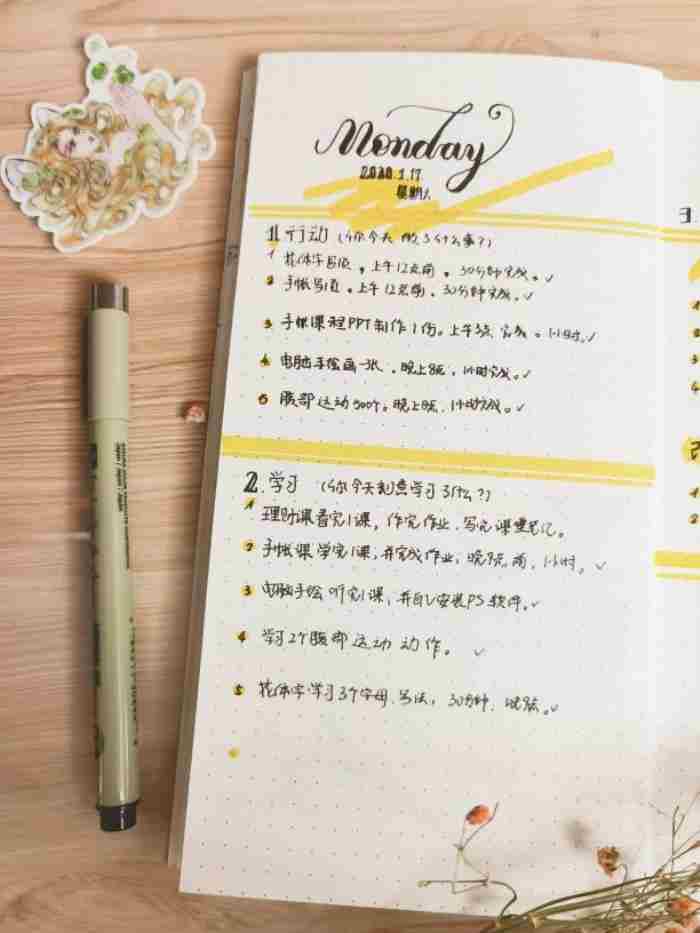 Monday
2020.1.17
星期
1.行动（你今天做了什么事？）
1 花体字写1页，上午12点前，30分钟完成。✓
2 手帐写1页。上午12点前、30分钟完成。✓
3 手帐课程PPT制作1份。上午 完成。1小时。✓
4 电脑手绘画一张，晚上8点，1小时完成。✓
5 腹部运动300个。晚上8点、1小时完成。✓
2.学习（你今天刻意学习了什么？）
1 理财课看完1课，作完作业、写完课堂笔记。
2 手帐课学完1课，并完成作业，晚 前，1小时。✓
3 电脑手绘听完1课，并 安装PS软件。✓
4 学习2个腹部运动动作。✓
5 花体字学习3个字母、写法，30分钟、 。✓